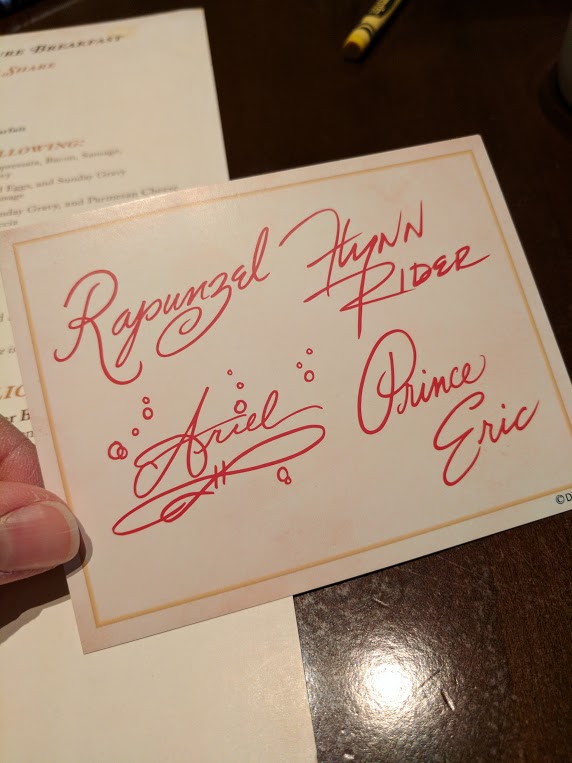 URE BREAKFAST
SHARE
arfait
LLOWING:
Eggs, and Sunday Gravy
nday Gravy, and Parmesan Cheese
Rapunzel
Flynn
RIDER
Ariel
Prince
Eric
©D